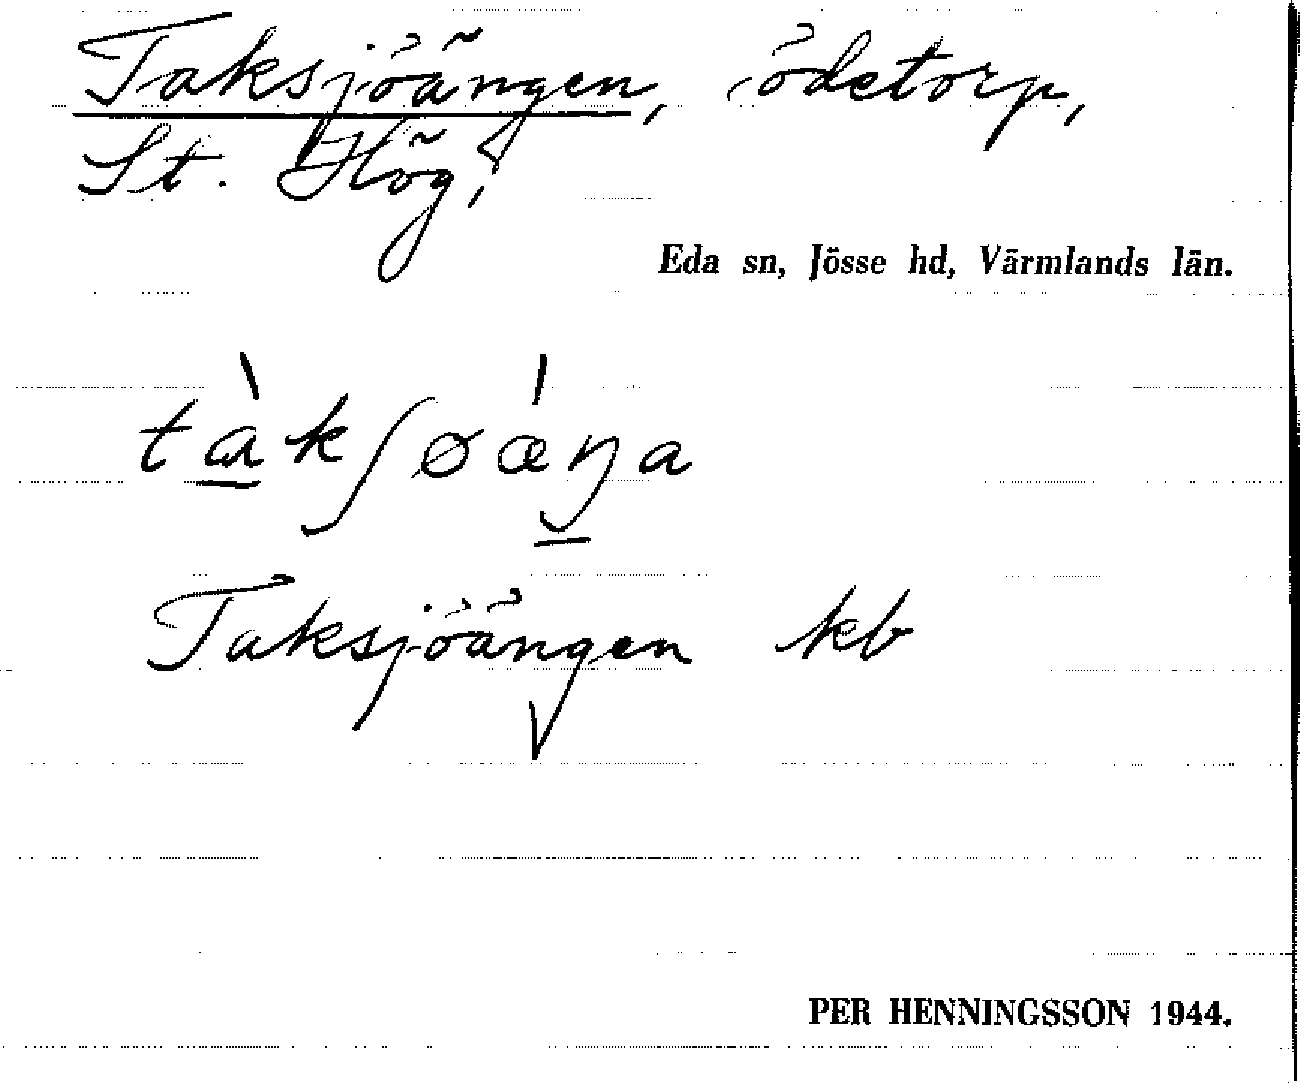 Taksjöängen, ödetorp,
St. Hög,
Eda sn, Jösse hd, Värmlands län.
tàkʃøǽŋa
Taksjöängen kb
PER HENNINGSSON 1944.